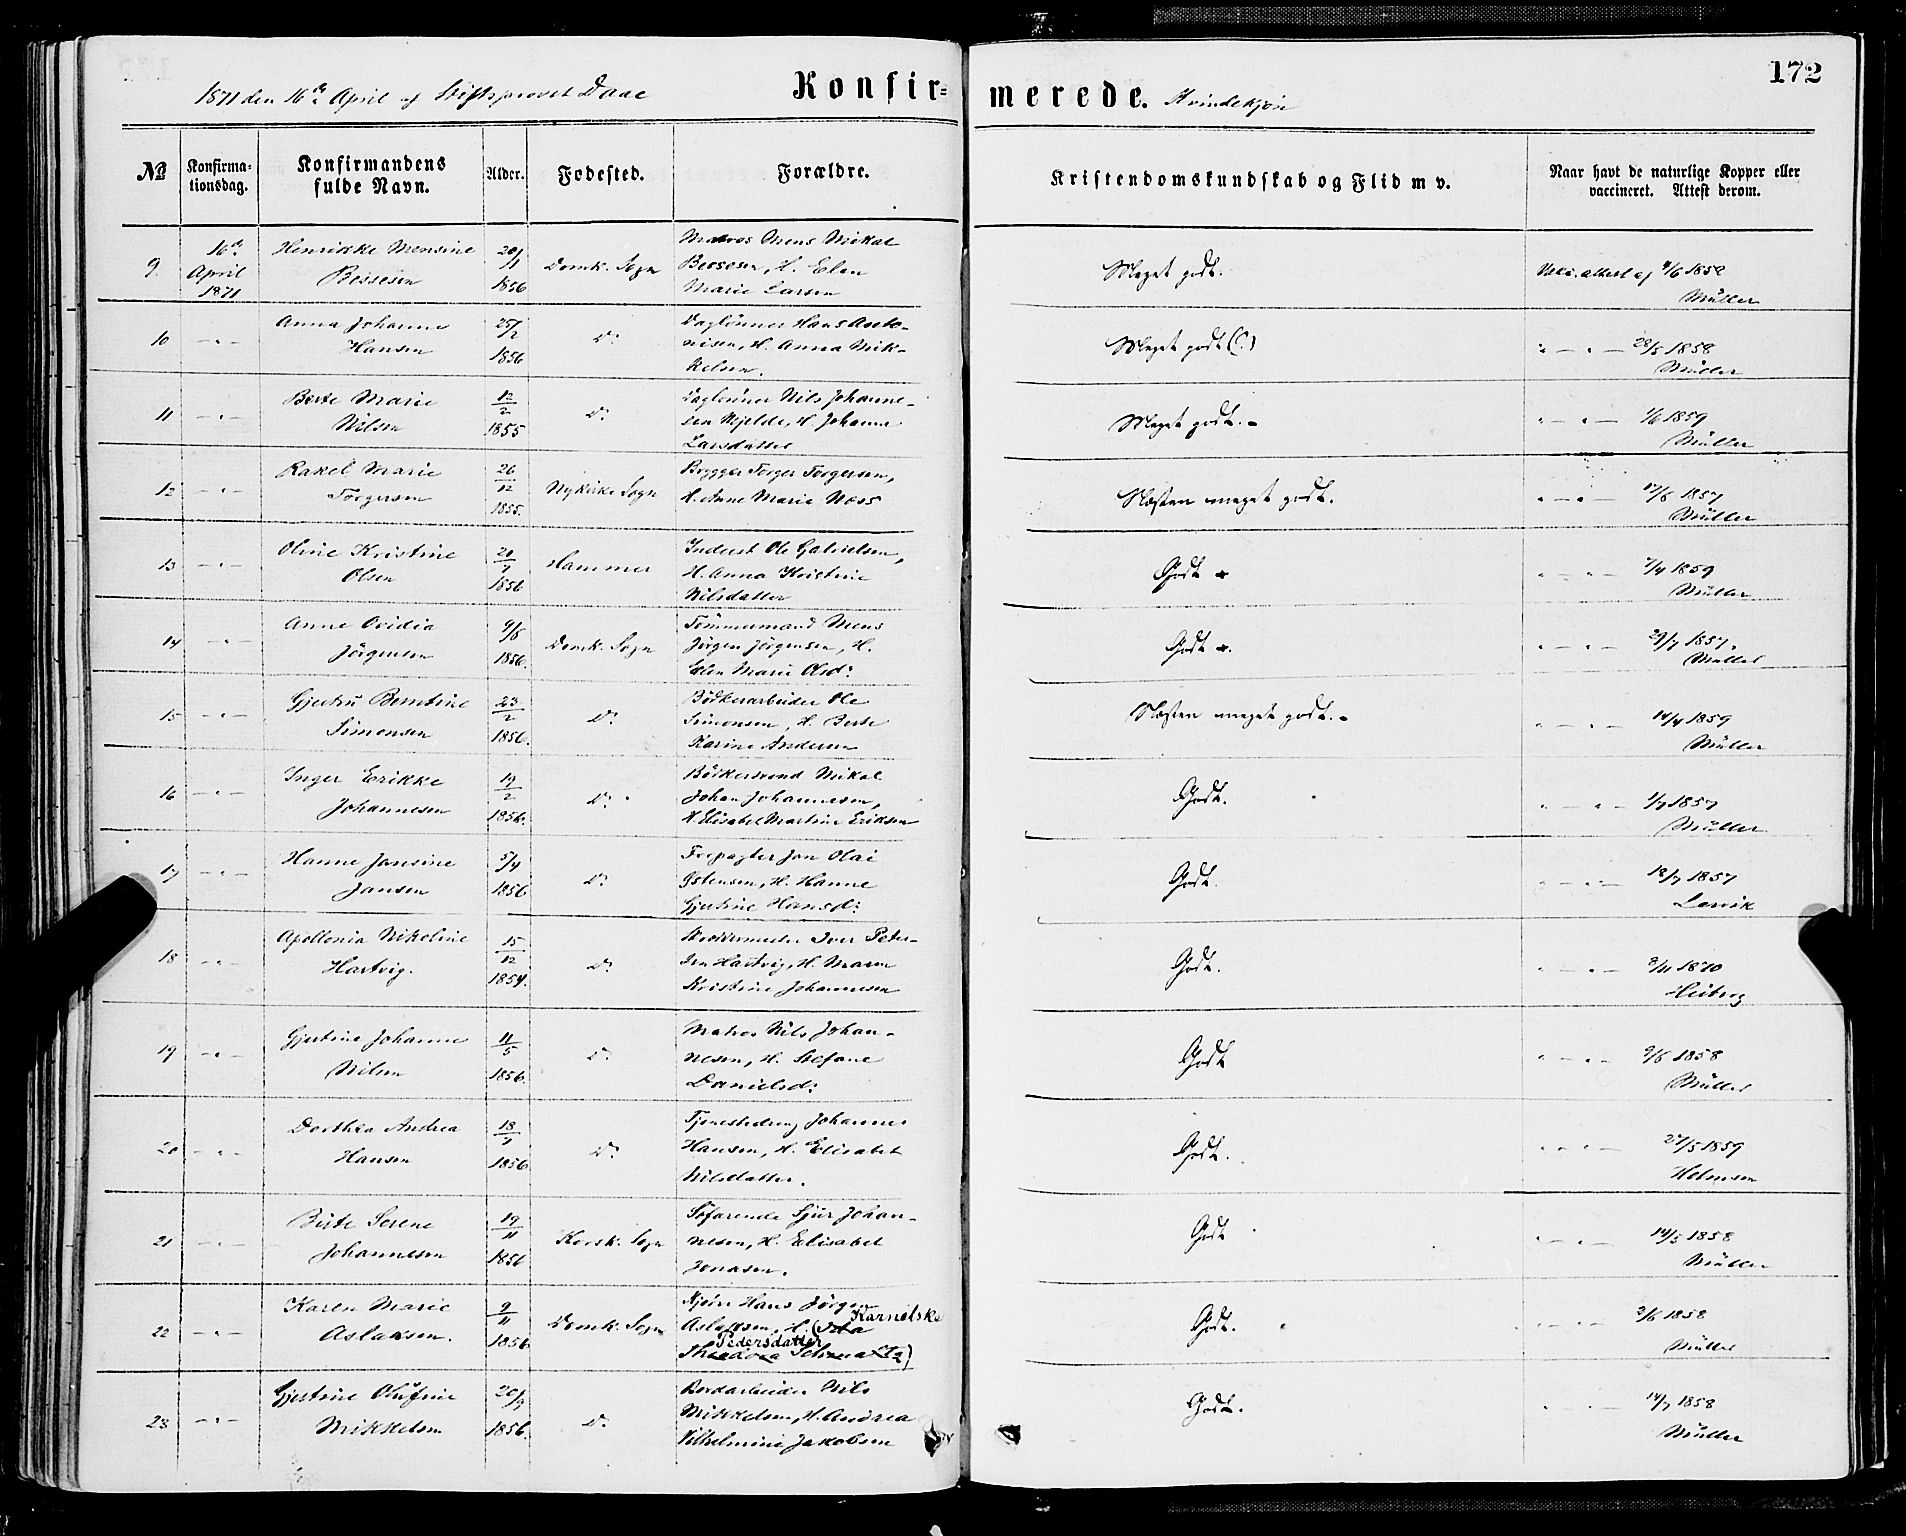 172
1871 den 16de April af Stiftsprovst Daae
Konfir=merede. Kvindekjøn
No Konfirma-tionsdag. Konfirmandens fulde Navn. Alder. Fødested. Forældre. Kristendomskundskab og Flid m v. Naar havt de naturlige Kopper eller vaccineret. Attest derom.
9. 16de Henrikke Monsine 20/1 Domk. Sogn Matros Mons Mikal Meget godt. Vacc. attest af 4/6 1858
April Bessesen 1856 Bessesen, H. Elen Müller
1871 Marie Larsen
10 — " — Anna Johanne 25/2 Do Daglönner Hans Anto- Meget godt (!) " — " — 28/5 1858
Hansen 1856 nisen, H. Anna Mik- Müller
kelsen.
11 — " — Berte Marie 12/2 Do Daglönner Nils Johanne- Meget godt. " — " — 1/6 1859
Nilsen 1855 sen Hjelde, H. Johanne Müller
Larsdatter
12 — " — Rakel Marie 26/12 Nykirke Sogn Brygger Torger Torgersen, Næsten meget godt. " — " — 17/6 1857
Torgersen 1855. H. Anne Marie Næss Müller
13 — " — Oline Kristine 20/7 Hammer Inderst Ole Gabrielsen, Godt " — " — 7/4 1859
Olsen 1856 H. Anna Kristine Müller
Nilsdatter
14 — " — Anne Ovidia 9/5 Domk. Sogn Tömmermand Mons Godt " — " — 29/7 1857.
Jörgensen 1856. Jörgen Jörgensen, H. Müller
Elen Marie Olsd:
15 — " — Gjertru Berntine 23/2 Do Bödkerarbeider Ole Næsten meget godt. " — " — 14/4 1859
Simonsen 1856. Simonsen, H. Berte Müller
Karine Andersen
16 — " — Inger Erikke 19/2 Do Bödkersvend Mikal Godt. " — " — 1/7 1857
Johannesen 1856. Johan Johannesen, Müller
H. Elisabet Martine Eriksen
17 — " — Hanne Jonsine 5/4 Do Forpagter Jon Olai Godt. " — " — 18/7 1857
Jansen 1856 Ostensen, H. Hanne Lervik
Gjertine Hansd:
18 — " — Apollonia Nikoline 15/12 Do Iver Peter- Godt. " — " — 8/11 1870
Hartvig. 1854. sen Hartvig, H. Maren Heiberg
Kristine Johannesen
19 — " — Gjertine Johanne 11/5 Do Matros Nils Johan- Godt " — " — 9/5 1858
Nilsen 1856. nesen, H. Stefane Müller
Danielsd:
20 — " — Dorthea Andrea 18/7 Do Tjenestedreng Johannes Godt. " — " — 27/5 1859
Hansen 1856 Hansen, H. Elisabet Holmsen
Nilsdatter.
21 — " — Berte Serene 19/11 Korsk. Sogn Söfarende Sjur Johan- Godt " — " — 14/5 1858
Johannesen 1856 nesen, H. Elisabet Müller
Jonasen.
22 — " — Karen Marie 9/11 Domk. Sogn Hans Jörgen Godt. " — " — 2/6 1858
Aslaksen. 1856 Aslaksen, H. Karnilske Müller
Pedersdatter
23 — " — Gjertine Olufine 20/9 Do Bordarbeider Nils Godt. " — " — 14/7 1858
Mikkelsen 1856. Mikkelsen, H. Andrea Müller
Vilhelmine Jakobsen